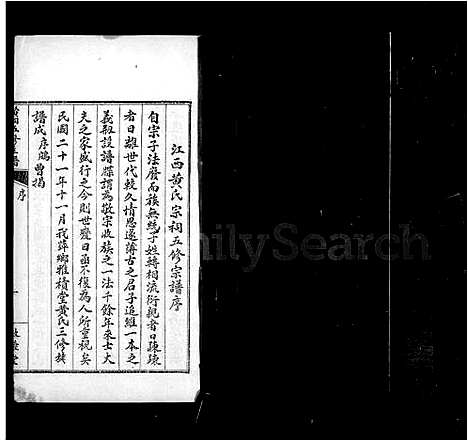 江西黃氏宗祠五修宗譜序
自宗子法廢而族無統子姓轉相流衍親者日疎疎
者日離世代較久情思遂薄古之君子追維一本之
義敬設譜牒謂為敬宗收族之一法千餘年來士大
夫之家盛行之今則世變日亟不復為人所重視矣
民國二十一年十一月我萍鄉雅積堂黃氏三修族
譜成 序端曾揭
序
FamilySearch